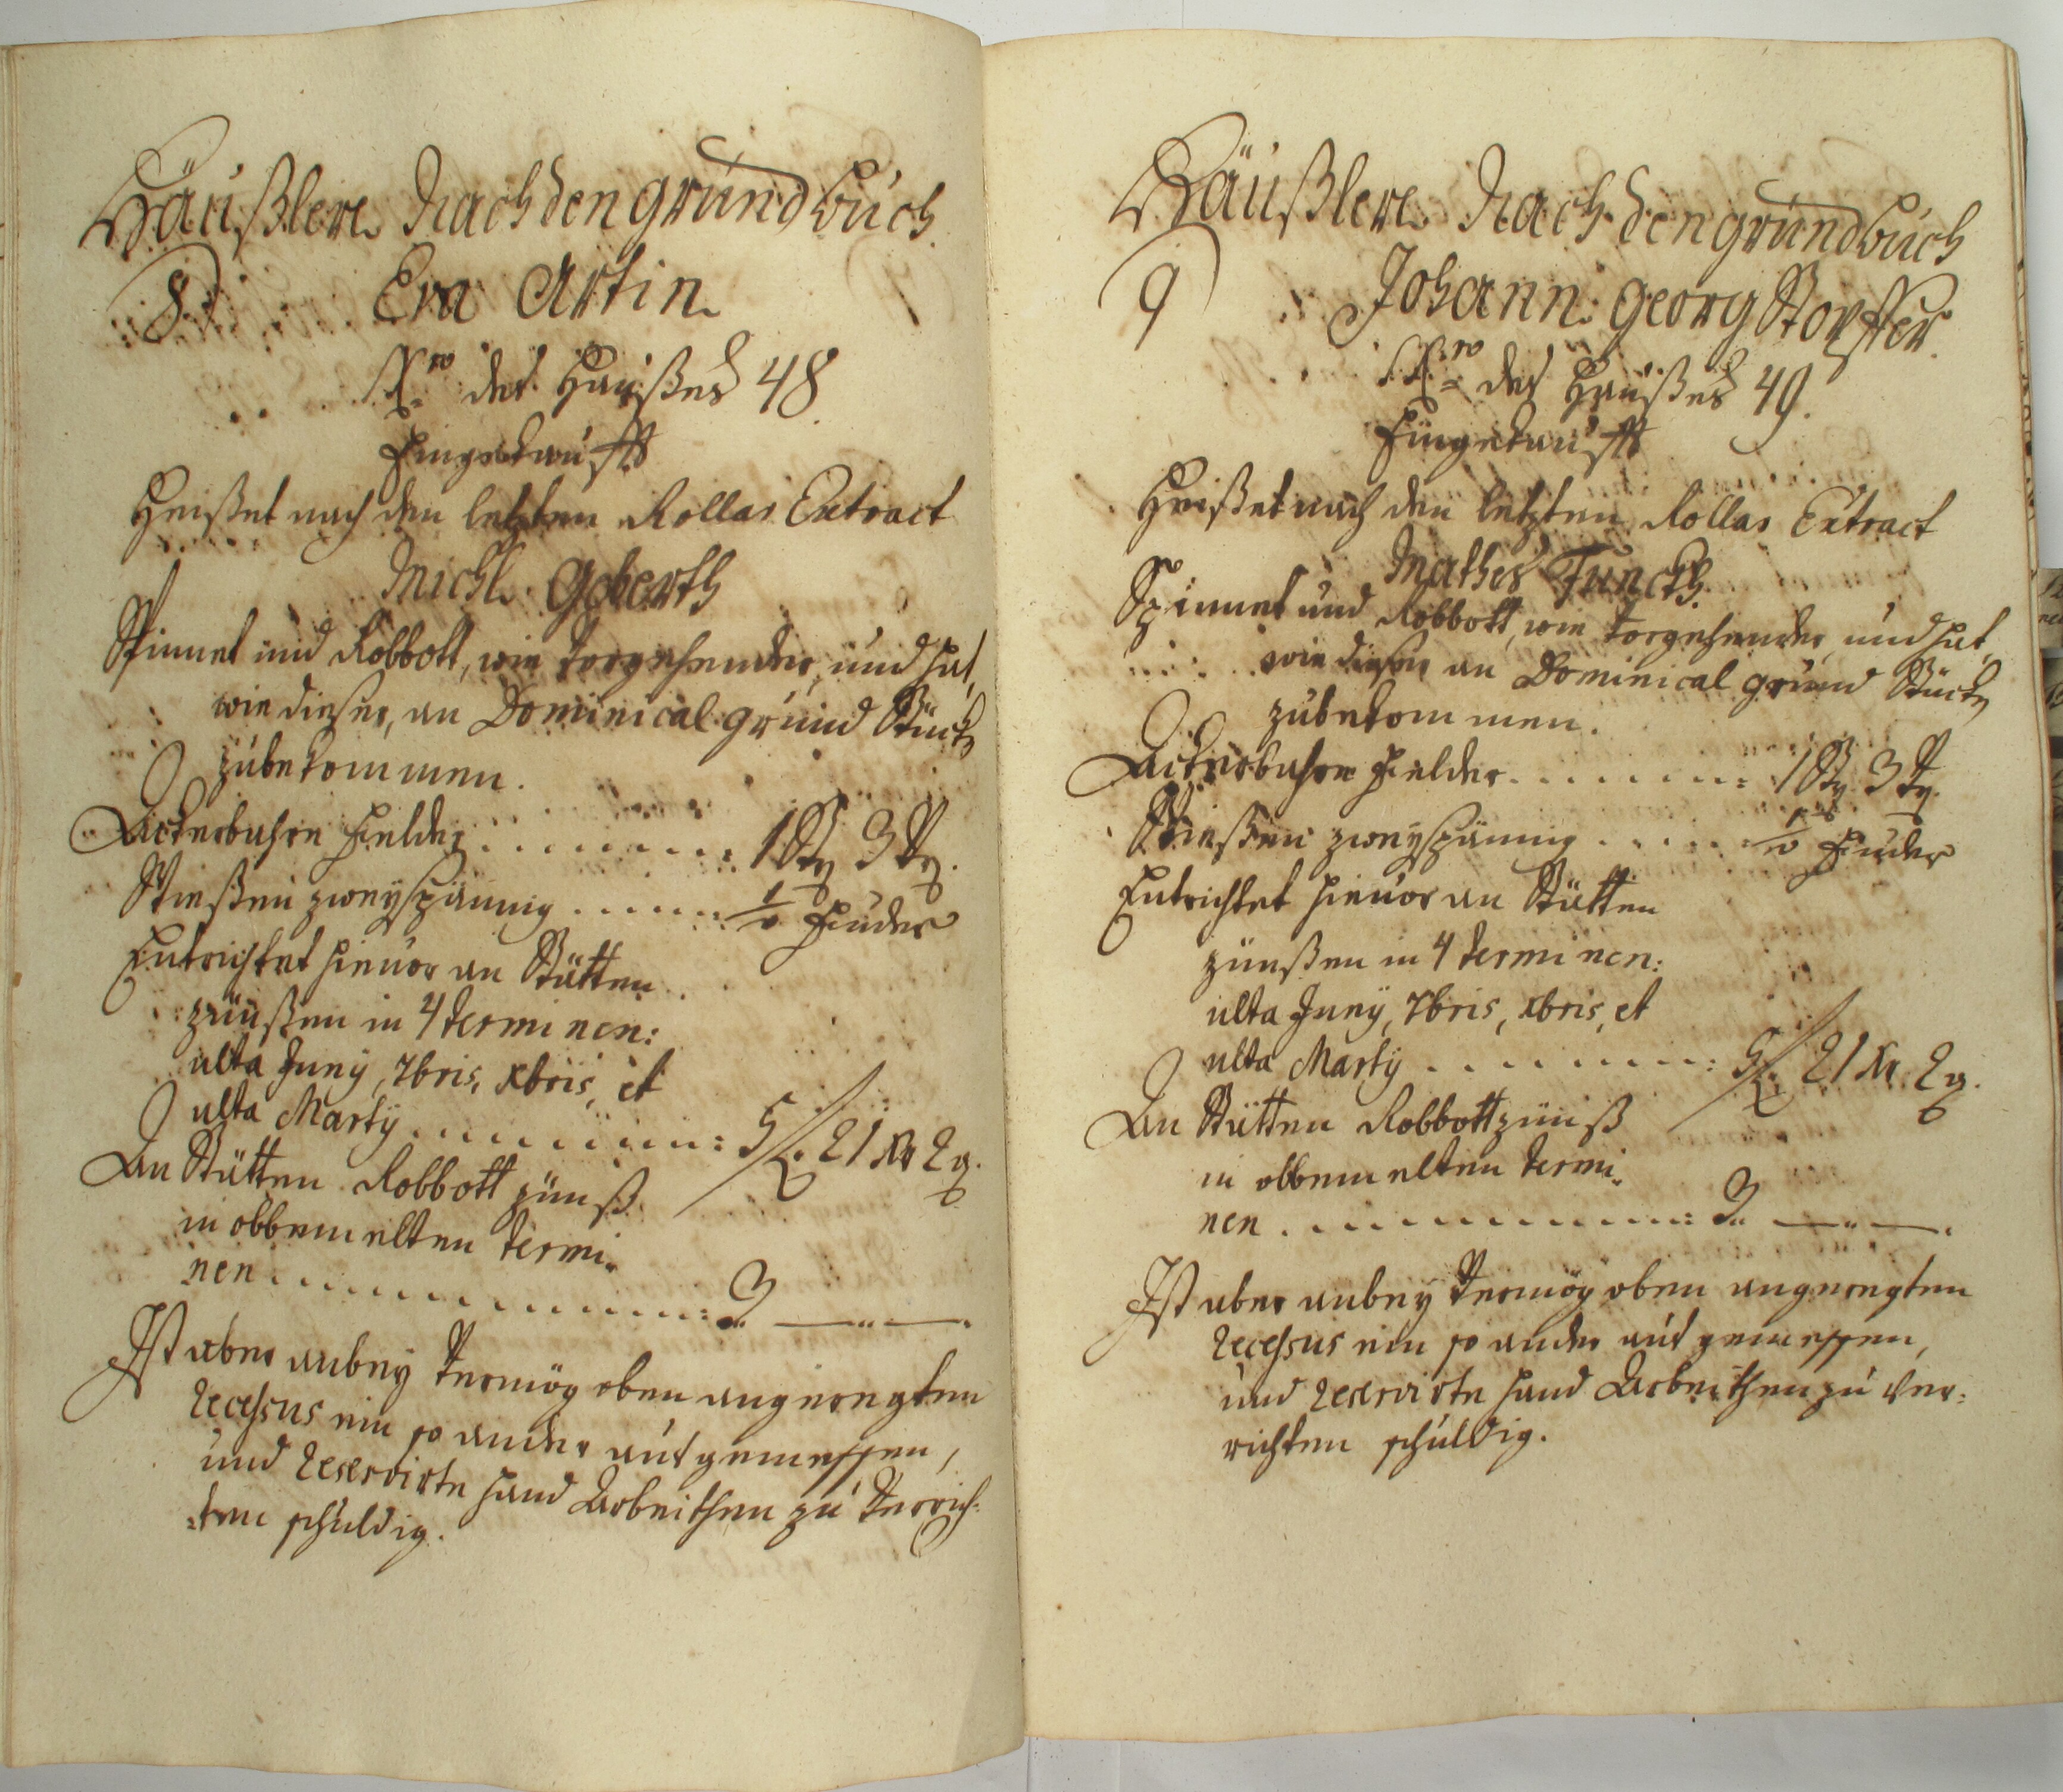 Häußlere Nach den grund buch.
8. Eva Artin
No des Haußes 48
Eingekaufft
Heisset nach den letzten Rollar Extract
Michl Geberth
Spinnet und Robbott, wie vorgehender, und hat,
wie dieser, an Dominical grund Stück
zubekommen.
Ackerbahre Felder 3
Wießen zweyspännig 1/2 Fuder
Entrichtet hievor an Stätten
zünßen in 4 terminen:
ulta Juny, 7bris, xbris, et
ulta Marty : 5 f. 21 Kr 2 q.
An Stätten Robbott zünß
in obbemelten termi¬
nen : 3 — —
Ist aber anbey vermög oben angeregten
recessus ein so ander aus gemessen,
und reservirte hand Arbeithen zu verrich¬
ten schuldig.
Häußlere Nach den grund buch
9 Johann Georg
No des Haußes 49.
Eingekaufft
Heisset nach den letzten Rollar Extract
Mathes Funckh.
Spinnet und Robbott, wie vorgehender, und hat,
wie dieser, an Dominical grund Stück
zubekommen.
Ackerbahre Felder 3
Wießen zweyspännig 1/2 Fuder
Entrichtet hievor an Stätten
zünßen in 4 terminen:
ulta Juny, 7bris, xbris, et
ulta Marty : 5 f. 21 Kr. 2 q.
An Stätten Robbott zünß
in obbemelten termi¬
nen : 3 — —
Ist aber anbey vermög oben angeregten
recessus ein so ander aus gemessen,
und reservirte hand Arbeithen zu ver¬
richten schuldig.